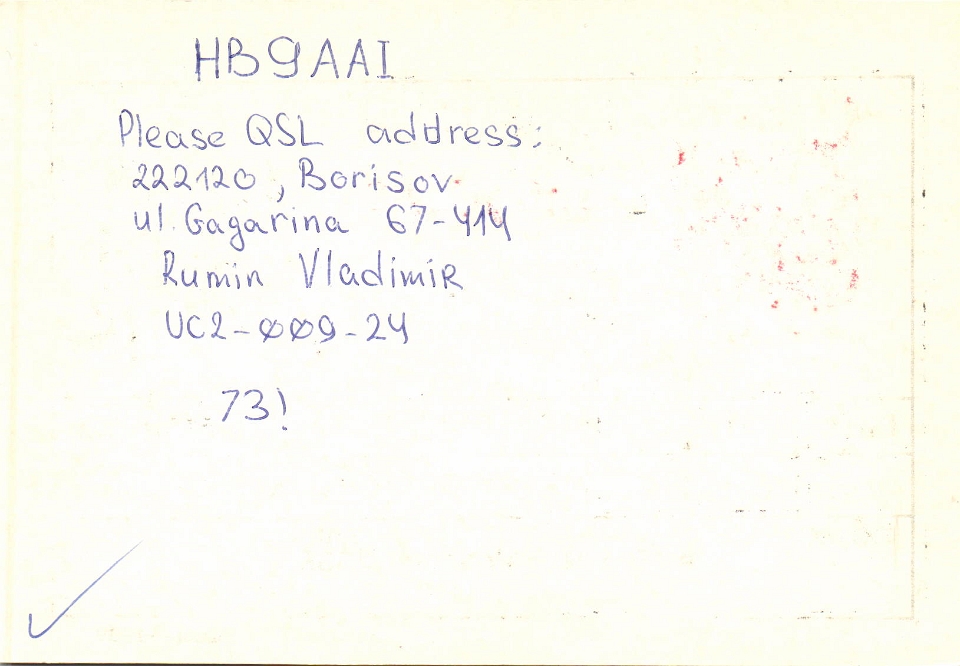 HB9AAI
Please QSL address:
222120, Borisov
ul. Gagarina 67-414
Rumin Vladimir
UC2-ØØ9-24
73!